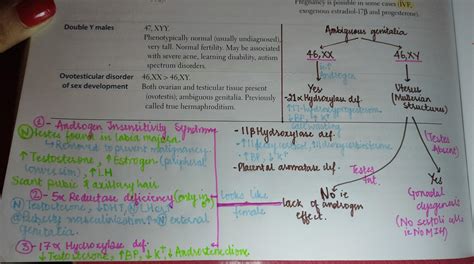 Pregnancy is possible in some cases (IVF,
exogenous estradiol-17β and progesterone).
Double Y males
47, XYY.
Phenotypically normal (usually undiagnosed),
very tall. Normal fertility. May be associated
with severe acne, learning disability, autism
spectrum disorders.
Ovotesticular disorder
of sex development
46,XX > 46,XY.
Both ovarian and testicular tissue present
(ovotestis); ambiguous genitalia. Previously
called true hermaphroditism.
Ambiguous genitalia
46,XX
46,XY
↑ Androgen
Yes
- 21α Hydroxylase def.
↑17-hydroxyprogesterone
↓BP, ↑K⁺
Salt wasting
- 11β Hydroxylase def.
↑BP, ↓K⁺
- Placental aromatase def.
Uterus
(Mullerian
structures)
(Testes
Absent)
Testes
Int.
No ie
lack of androgen
effect.
Yes
Gonadal
dysgenesis
(No sertoli cells
ie No MIH)
1- Androgen Insensitivity Syndrome
(N) Testes found in labia majora.
↳ Removed to prevent malignancy.
↑ Testosterone, ↑ Estrogen (peripheral
conversion), ↑LH
Scant pubic & axillary hair
2- 5α Reductase deficiency
(N) Testosterone, ↓DHT, (N) LH
@ Puberty masculinization ↑(N) external
genitalia.
Looks like
female
3- 17α Hydroxylase def:
↓ Testosterone, ↑BP, ↓K⁺, ↓ Androstenedione